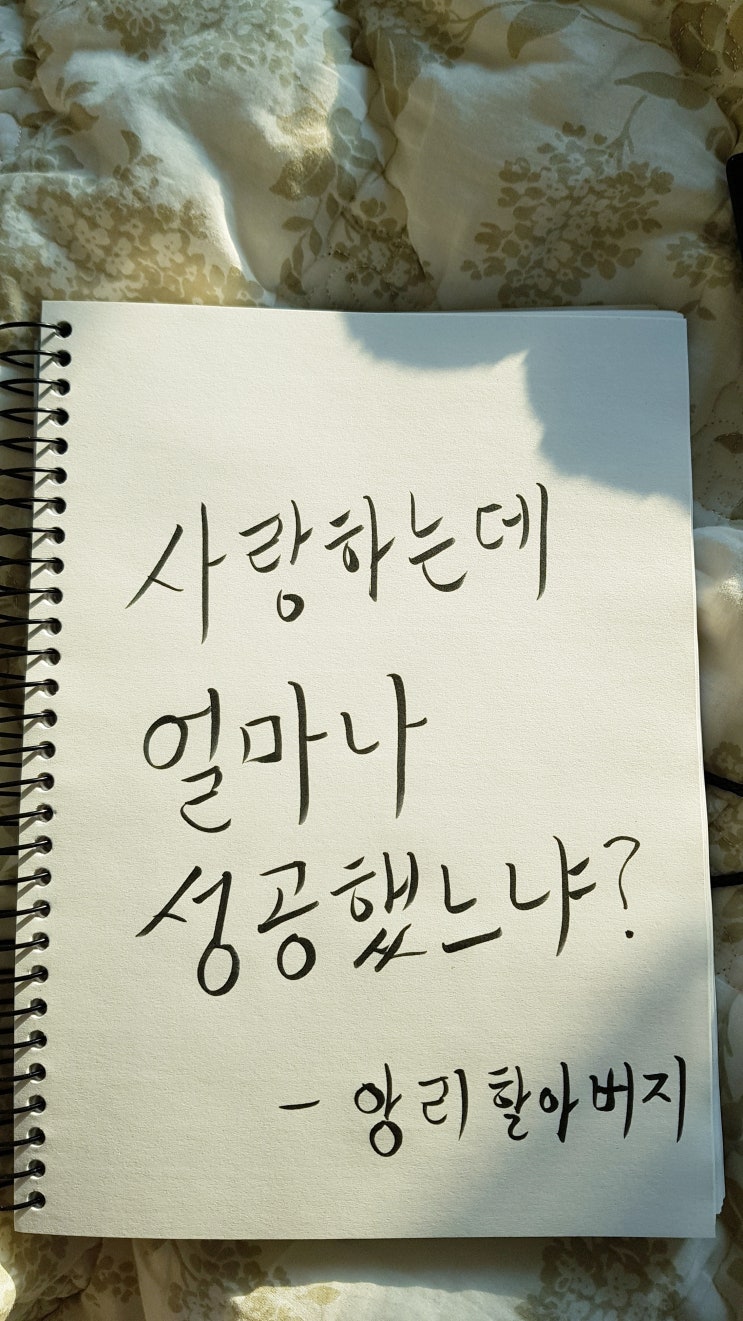 사랑하는데
얼마나
성공했느냐?
- 앙리할아버지